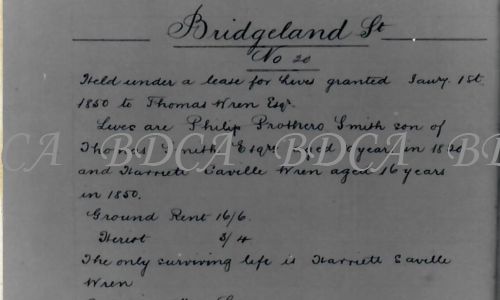 Bridgeland St
No 20
Held under a lease for lives granted Jany. 1st
1850 to Thomas Wren Esqr.
Lives are Philip Prothero Smith son of
Thomas Smith Esqre aged years in 18
and Harriete Saville Wren aged 16 years
in 1850.
Ground Rent 16/6.
Heriot 3/4
The only surviving life is Harriete Saville
Wren
CA BDCA BDCA BD